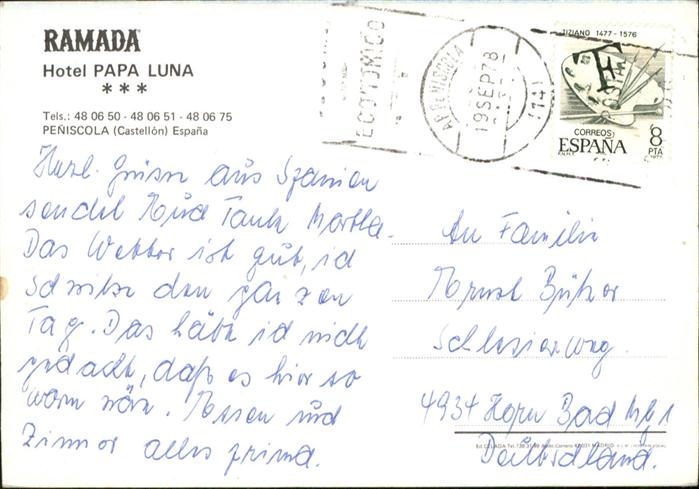 RAMADA
Hotel PAPA LUNA
***
Tels.: 48 06 50 - 48 06 51 - 48 06 75
PEÑISCOLA (Castellón) España
Herzl. Grüsse aus Spanien
sendet Tante Martha.
Das Wetter ist gut, ich
schwitze den ganzen
Tag. Das hätte ich nicht
gedacht, daß es hier so
warm wäre. Essen und
Zimmer alles prima.
ECONOMICO
PEÑISCOLA
19 SEP 78
TIZIANO 1477-1576
CORREOS
ESPAÑA
8
PTA
An Familie
Schlesierweg.
4934 Horn Bad Mbg 1
Deutschland.